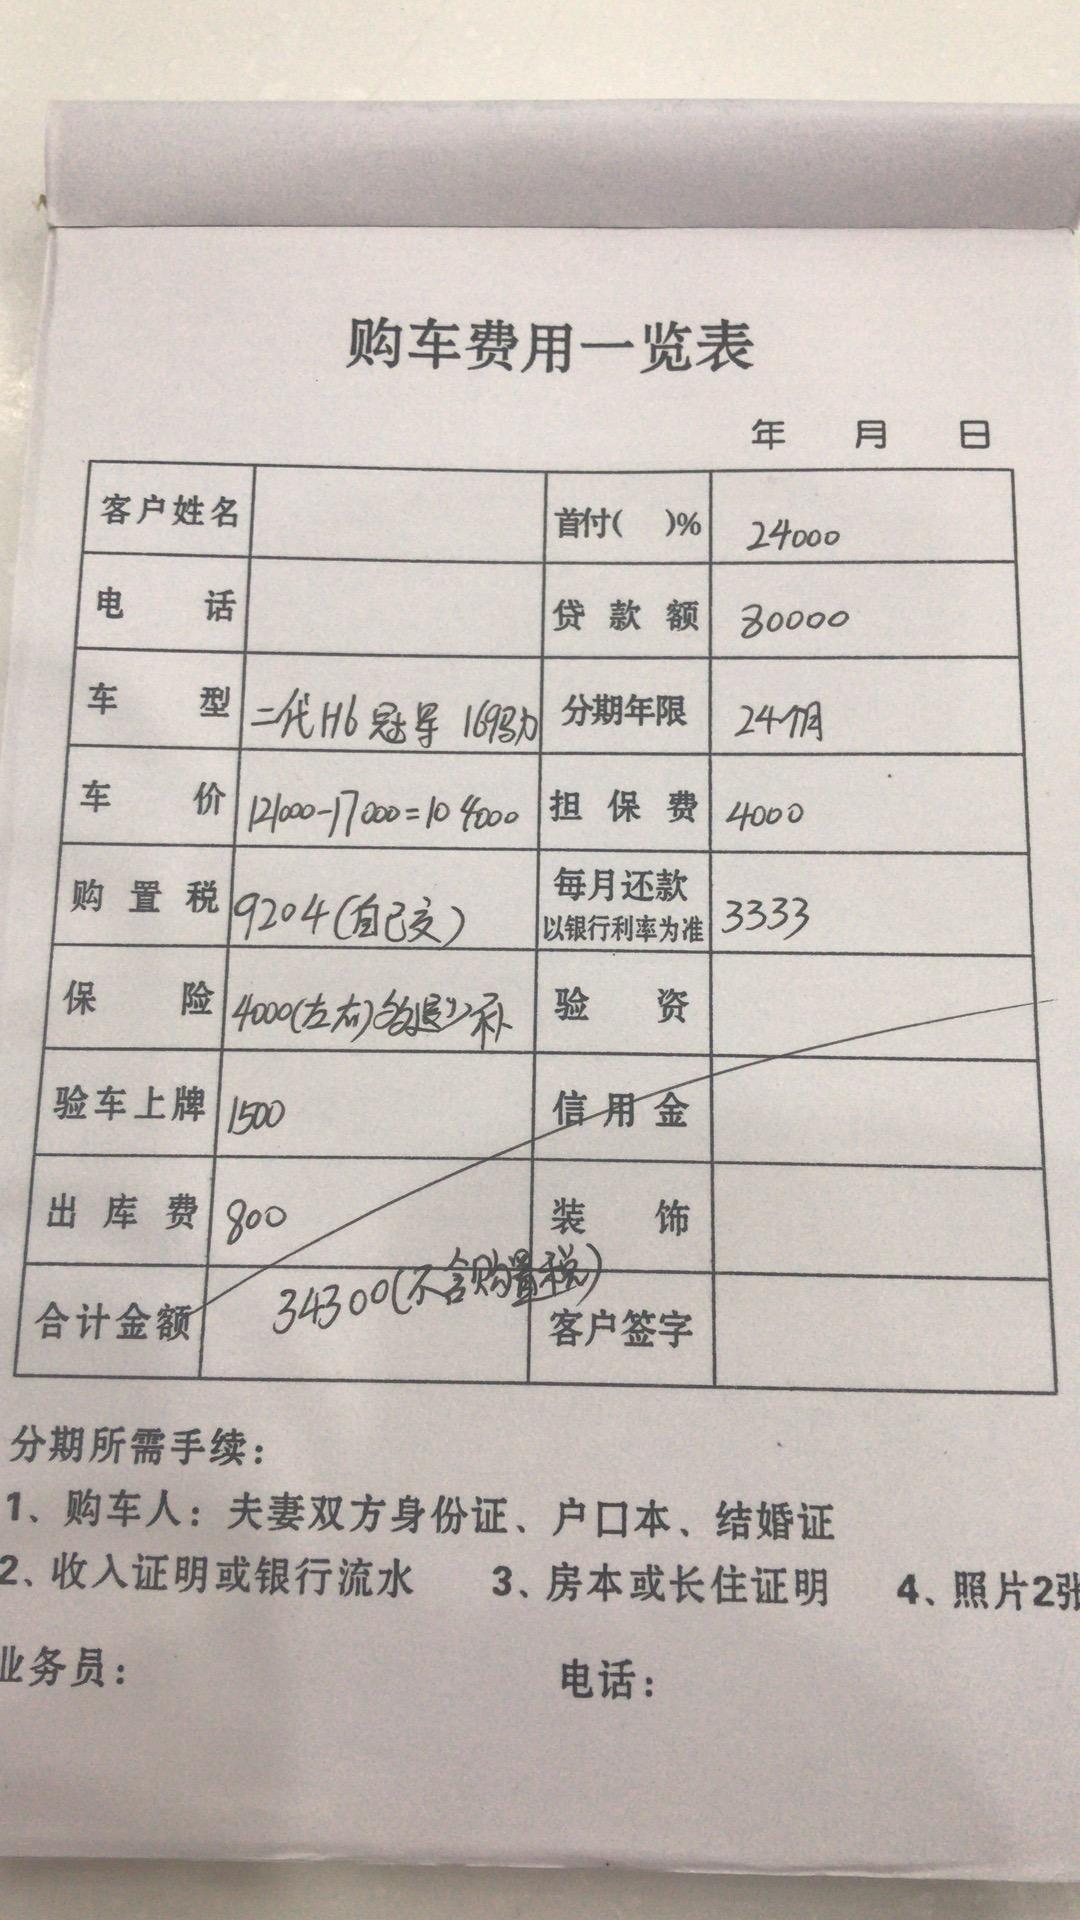 购车费用一览表
年 月 日
客户姓名 首付( )% 24000
电话 贷款额 80000
车型 二代H6 冠军 169马力 分期年限 24个月
车价 121000-17000=104000 担保费 4000
购置税 9204(自己交) 每月还款 以银行利率为准 3333
保险 4000(左右)多退少补 验资
验车上牌 1500 信用金
出库费 800 装饰
合计金额 34300(不含购置税) 客户签字
分期所需手续:
1、购车人:夫妻双方身份证、户口本、结婚证
2、收入证明或银行流水 3、房本或长住证明 4、照片2张
业务员: 电话: